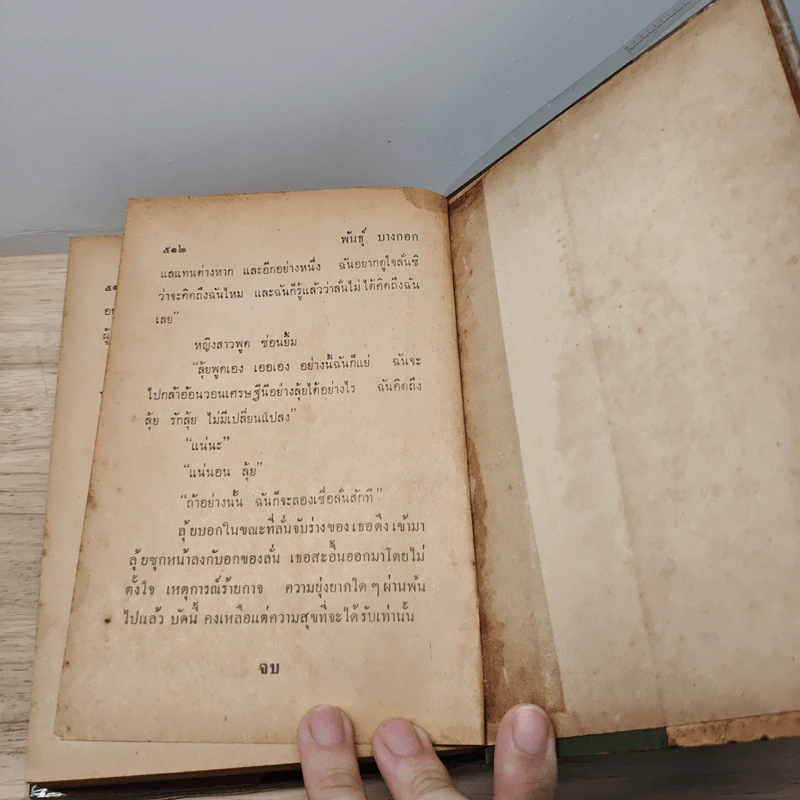 ๕๑๒ พันธุ์ บางกอก
แลแทนต่างหาก และอีกอย่างหนึ่ง ฉันอยากดูใจลั่นซิ
ว่าจะคิดถึงฉันไหม และฉันก็รู้แล้วว่าลั่นไม่ได้คิดถึงฉัน
เลย”
หญิงสาวพูด ซ่อนยิ้ม
“ลุ้ยพูดเอง เออเอง อย่างนี้ฉันก็แย่ ฉันจะ
ไปกล้าอ้อนวอนเศรษฐีนีอย่างลุ้ยได้อย่างไร ฉันคิดถึง
ลุ้ย รักลุ้ย ไม่มีเปลี่ยนแปลง”
“แน่นะ”
“แน่นอน ลุ้ย”
“ถ้าอย่างนั้น ฉันก็จะลองเชื่อลั่นสักที”
ลุ้ยบอกในขณะที่ลั่นจับร่างของเธอดึงเข้ามา
ลุ้ยซุกหน้าลงกับอกของลั่น เธอสะอื้นออกมาโดยไม่
ตั้งใจ เหตุการณ์ร้ายกาจ ความยุ่งยากใด ๆ ผ่านพ้น
ไปแล้ว บัดนี้ คงเหลือแต่ความสุขที่จะได้รับเท่านั้น
จบ